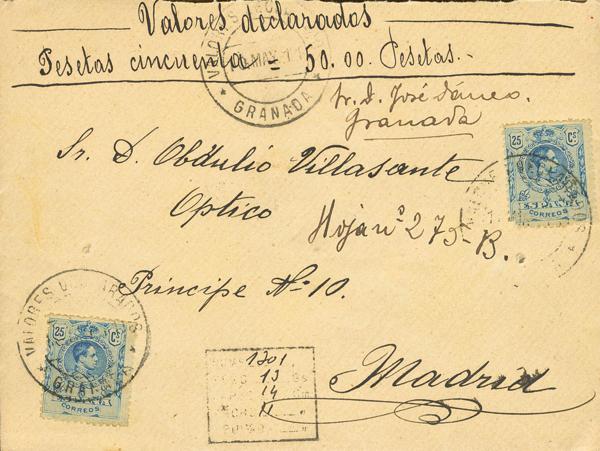 Valores declarados
Pesetas cincuenta = 50.00. Pesetas.
VALORES
MAY. 11
* GRANADA *
D. José
Granada
25 Cs
CORREOS
Sr. D. Obdulio Villasante
Optico
Hoja nº 275 B.
Principe Nº 10.
Madrid
VALORES DECLARADOS
* GRANADA *
25 Cs
CORREOS
1201
13
14
11